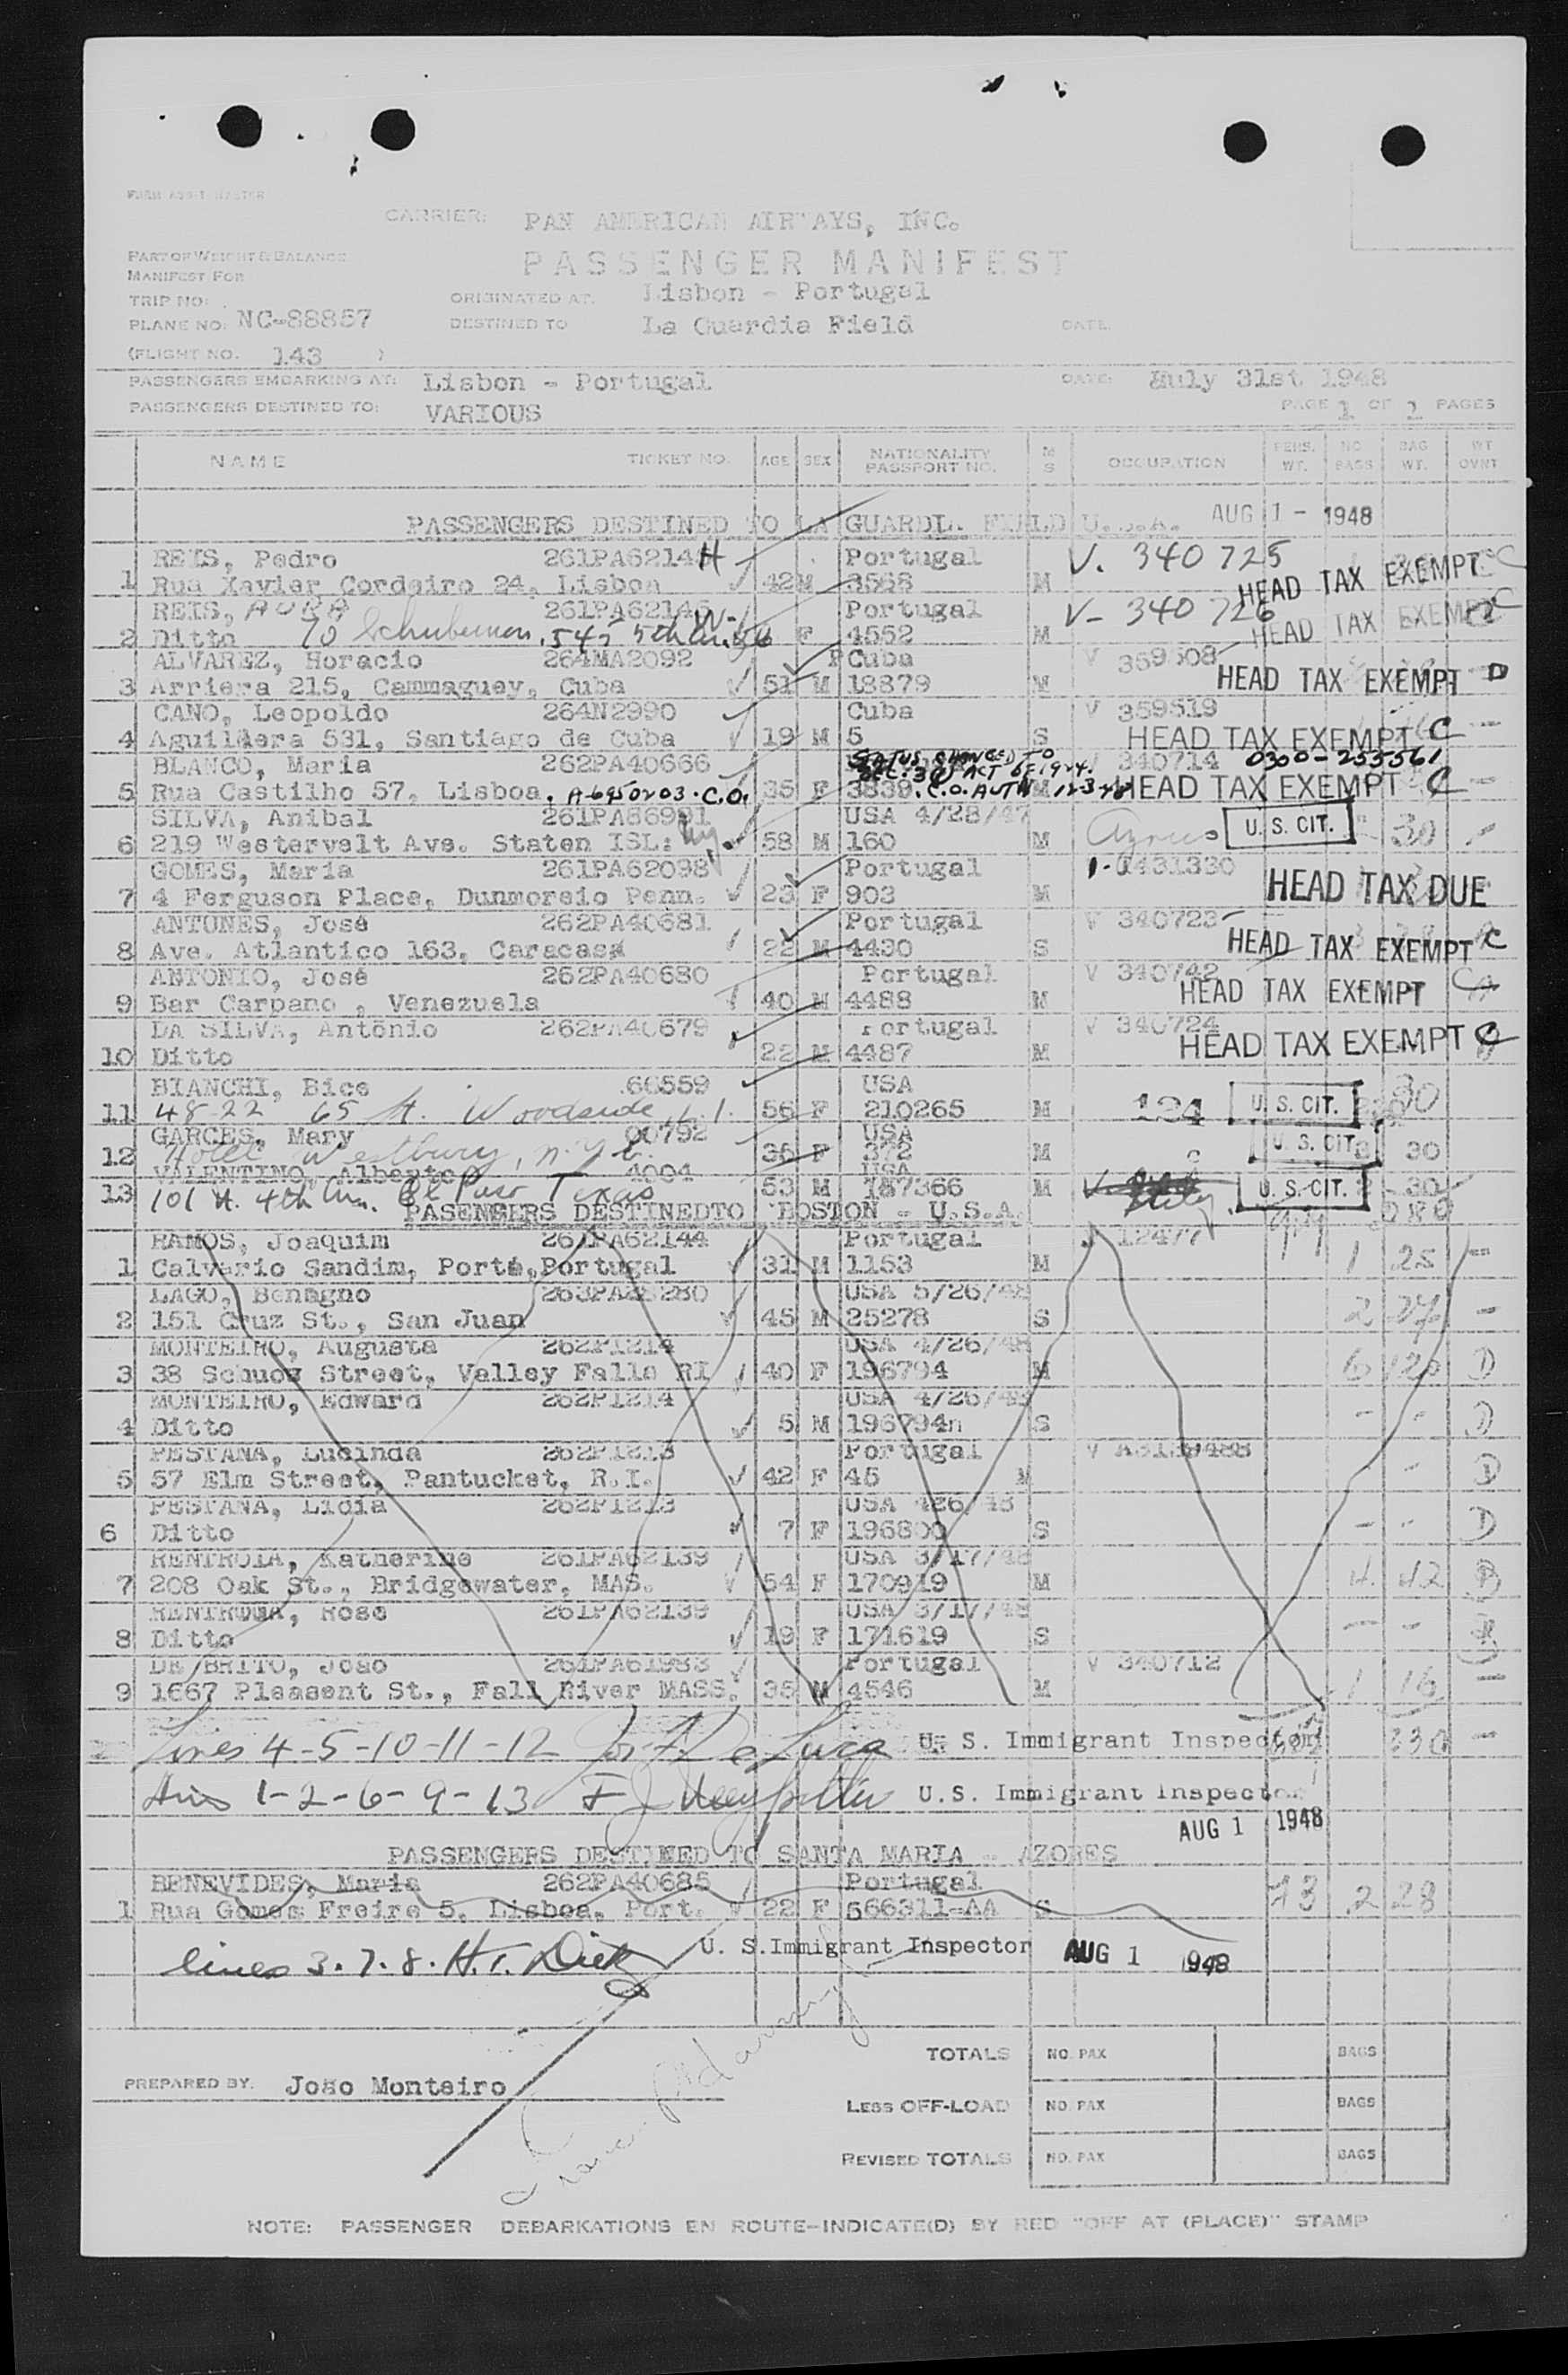 CARRIER: PAN AMERICAN AIRWAYS, INC.
PART OF WEIGHT & BALANCE
PASSENGER MANIFEST
MANIFEST FOR
TRIP NO: ORIGINATED AT: Lisbon - Portugal
PLANE NO. NC-88857 DESTINED TO La Guardia Field DATE:
(FLIGHT NO. 143 )
PASSENGERS EMBARKING AT: Lisbon - Portugal DATE: July 31st 1948
PASSENGERS DESTINED TO: VARIOUS PAGE 1 OF 2 PAGES
NAME TICKET NO. AGE SEX NATIONALITY PASSPORT NO. M S OCCUPATION PERS. WT. NO BAGS BAG WT. WT OVNT
PASSENGERS DESTINED TO LA GUARDIA FIELD U.S.A. AUG 1 - 1948
REIS, Pedro 261PA62145 H Portugal V. 340725
1 Rua Xavier Cordeiro 24, Lisboa 42 M 3568 M HEAD TAX EXEMPT C
REIS, AURA 261PA62146 W- Portugal V- 340726
2 Ditto F 4552 M HEAD TAX EXEMPT C
ALVAREZ, Horacio 264MA2092 Cuba V 359508
3 Arriera 215, Cammaguey, Cuba 51 M 18879 M HEAD TAX EXEMPT D
CANO, Leopoldo 264N2990 Cuba V 359519
4 Aguilera 531, Santiago de Cuba 19 M 5 S HEAD TAX EXEMPT C
BLANCO, Maria 262PA40666 STATUS CHANGED TO V 340714 0300-255561
5 Rua Castilho 57, Lisboa, A-6950203. C.O. 35 F 3839 M HEAD TAX EXEMPT C
SILVA, Anibal 261PA86991 USA 4/28/47
6 219 Westervelt Ave. Staten ISL: 58 M 160 M Azores U. S. CIT. 30
GOMES, Maria 261PA62098 Portugal 1431330
7 4 Ferguson Place, Dunmoreio Penn. 23 F 903 M HEAD TAX DUE
ANTUNES, José 262PA40681 Portugal V 340723
8 Ave. Atlantico 163, Caracas 22 M 4430 S HEAD TAX EXEMPT C
ANTONIO, José 262PA40680 Portugal V 340742
9 Bar Carpano , Venezuela 40 M 4488 M HEAD TAX EXEMPT
DA SILVA, António 262PA40679 Portugal V 340724
10 Ditto 22 M 4487 M HEAD TAX EXEMPT C
BIANCHI, Bice 66559 USA
11 48-22 65 St. Woodside, L.I. 56 F 210265 M 124 U. S. CIT. 30
GARCES, Mary 00792 USA
12 Hotel Westbury, N.Y.C. 36 F 372 M U. S. CIT. 30
VALENTINO, Alberto 4004 USA
13 101 N. 4th Ave. El Paso Texas 53 M 187366 M U. S. CIT. 2 30
PASENGERS DESTINEDTO BOSTON - U.S.A.
RAMOS, Joaquim 261PA62144 Portugal 12477
1 Calvario Sandim, Porto, Portugal 31 M 1153 M 1 25 -
LAGO, Benigno USA 5/26/48
2 151 Cruz St., San Juan 45 M 25278 S 2 27 -
MONTEIRO, Augusta 262P1214 USA 4/26/48
3 38 Street, Valley Falls RI 40 F 196794 M 6 120 D
MONTEIRO, Edward 262P1214 USA 4/26/48
4 Ditto 5 M 196794n S - - D
PESTANA, Lucinda 262P1213 Portugal V
5 57 Elm Street, Pantucket, R.I. 42 F 45 M - - D
PESTANA, Lidia 262P1213 USA 426/48
6 Ditto 7 F 196800 S - - D
RENTROIA, Katherine 261PA62139 USA 3/17/48
7 208 Oak St., Bridgewater, MAS. 54 F 170919 M 4 42
RENTROIA, Rose 261PA62139 USA 3/17/48
8 Ditto 19 F 171619 S - -
DE BRITO, João 261PA61983 Portugal V 340712
9 1667 Pleasent St., Fall River MASS. 35 M 4546 M 1 16 -
Lines 4-5-10-11-12 U. S. Immigrant Inspector 330 -
1-2-6-9-13 U.S. Immigrant Inspector
AUG 1 1948
PASSENGERS DESTINED TO SANTA MARIA - AZORES
BENEVIDES, Maria 262PA40685 Portugal
1 Rua Gomes Freire 5, Lisboa, Port. 22 F 566311-AA S 73 2 28
lines 3.7.8. H.T. Dick U. S.Immigrant Inspector AUG 1 1948
TOTALS NO. PAX BAGS
PREPARED BY. João Monteiro
LESS OFF-LOAD NO. PAX BAGS
REVISED TOTALS NO. PAX BAGS
NOTE: PASSENGER DEBARKATIONS EN ROUTE-INDICATE(D) BY RED "OFF AT (PLACE)" STAMP